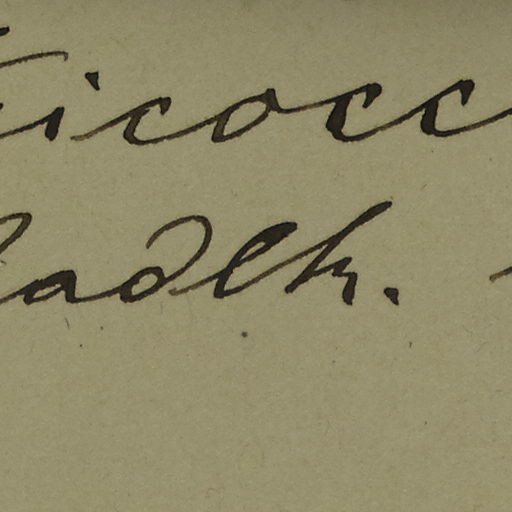 ticocc
adlk.